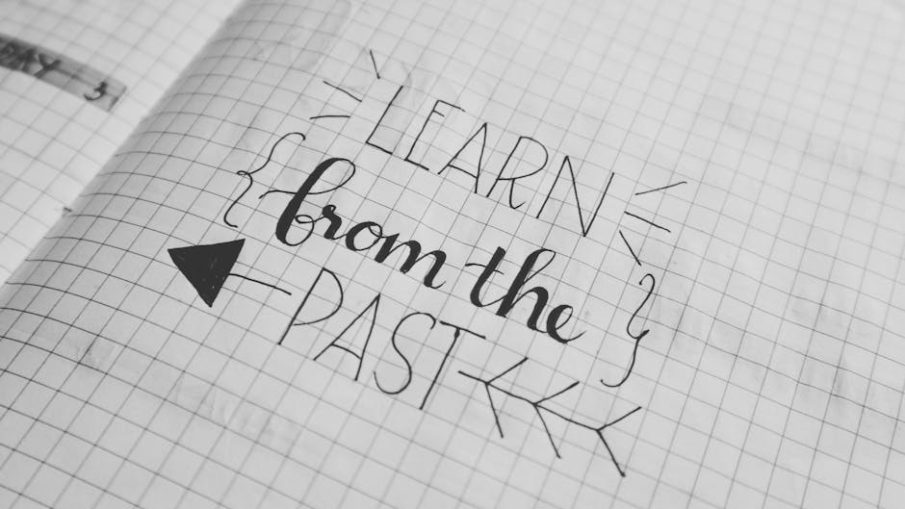 DAY 3
LEARN
from the
PAST